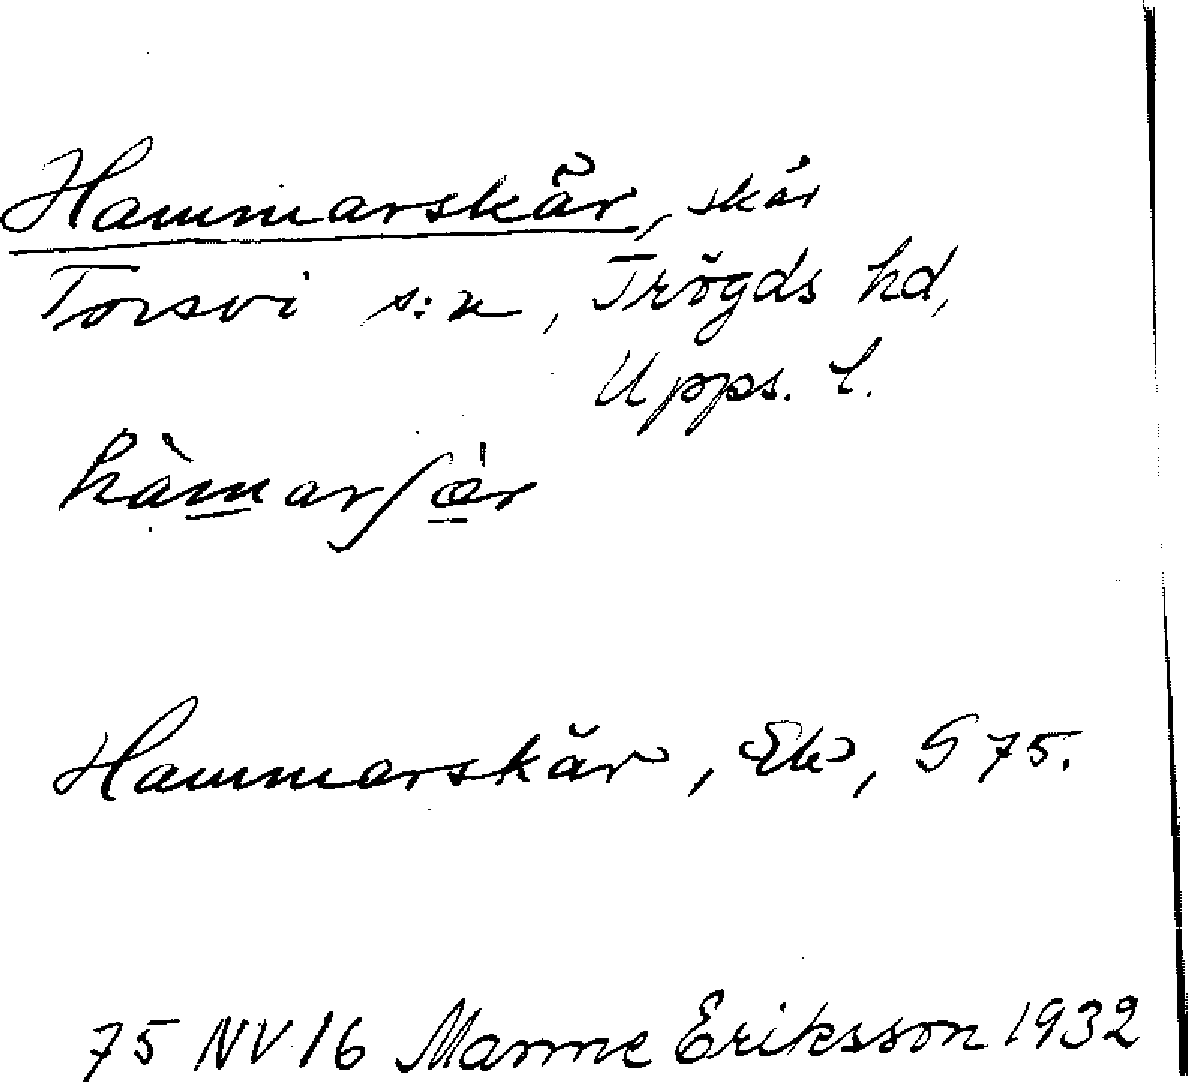 Hammarskär, skär
Torsvi s:n, Trögds hd,
Upps. l.
hàmarʃæ̀r
Hammarskär, Ek, G 75.
75 NV 16 Manne Eriksson 1932